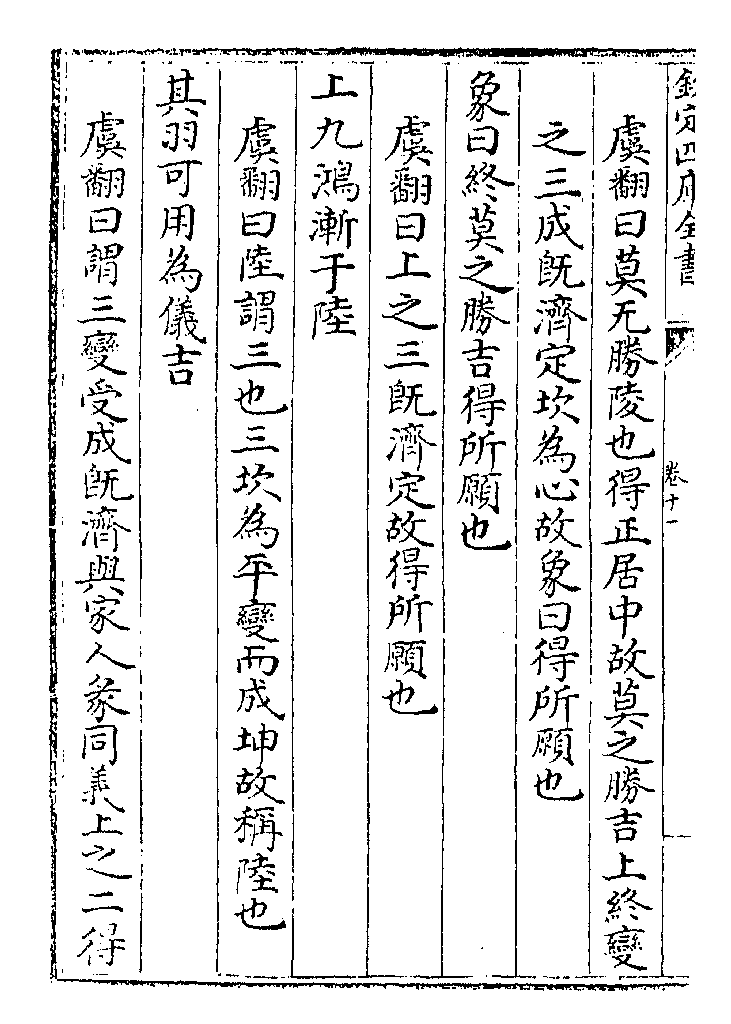 欽定四庫全書
卷十一
虞翻曰莫无勝陵也得正居中故莫之勝吉上終變
之三成既濟定坎為心故象曰得所願也
象曰終莫之勝吉得所願也
虞翻曰上之三既濟定故得所願也
上九鴻漸于陸
虞翻曰陸謂三也三坎為平變而成坤故稱陸也
其羽可用為儀吉
虞翻曰謂三變受成既濟與家人彖同義上之二得